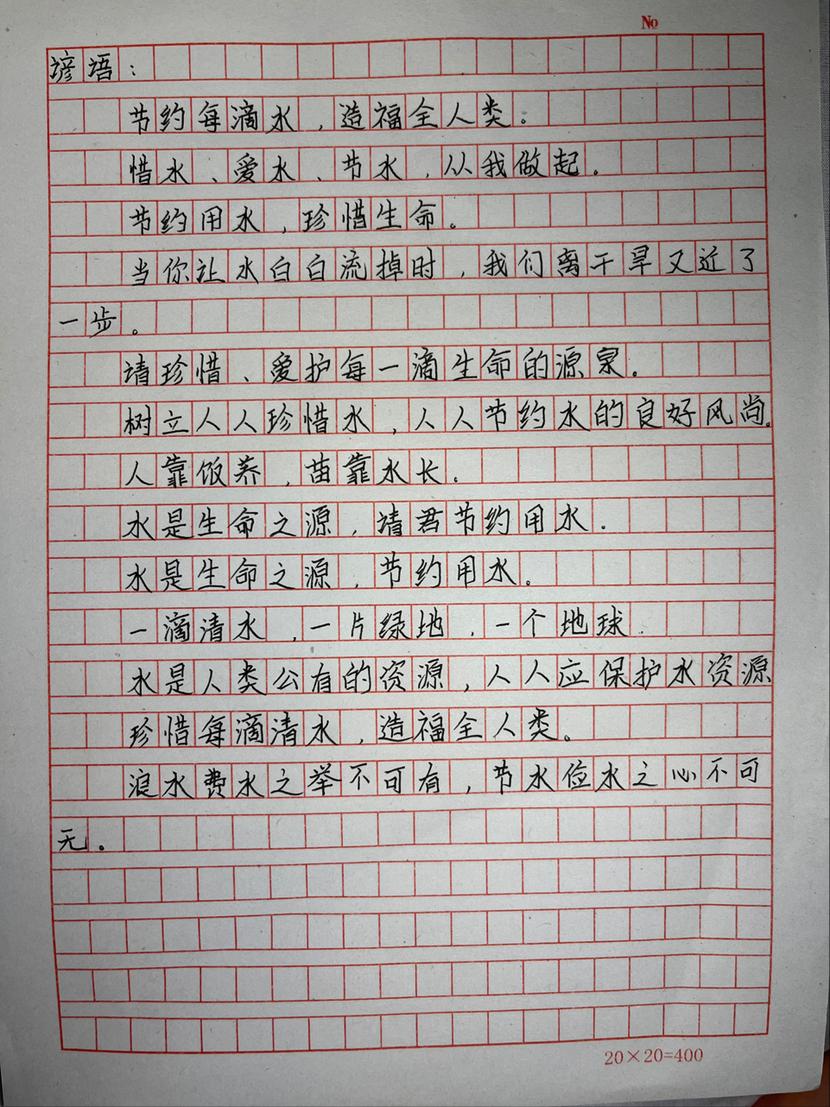 №
谚语：
节约每滴水，造福全人类。
惜水、爱水、节水，从我做起。
节约用水，珍惜生命。
当你让水白白流掉时，我们离干旱又近了
一步。
请珍惜、爱护每一滴生命的源泉。
树立人人珍惜水，人人节约水的良好风尚。
人靠饭养，苗靠水长。
水是生命之源，请君节约用水.
水是生命之源，节约用水。
一滴清水，一片绿地，一个地球.
水是人类公有的资源，人人应保护水资源
珍惜每滴清水，造福全人类。
浪水费水之举不可有，节水俭水之心不可
无。
20×20=400